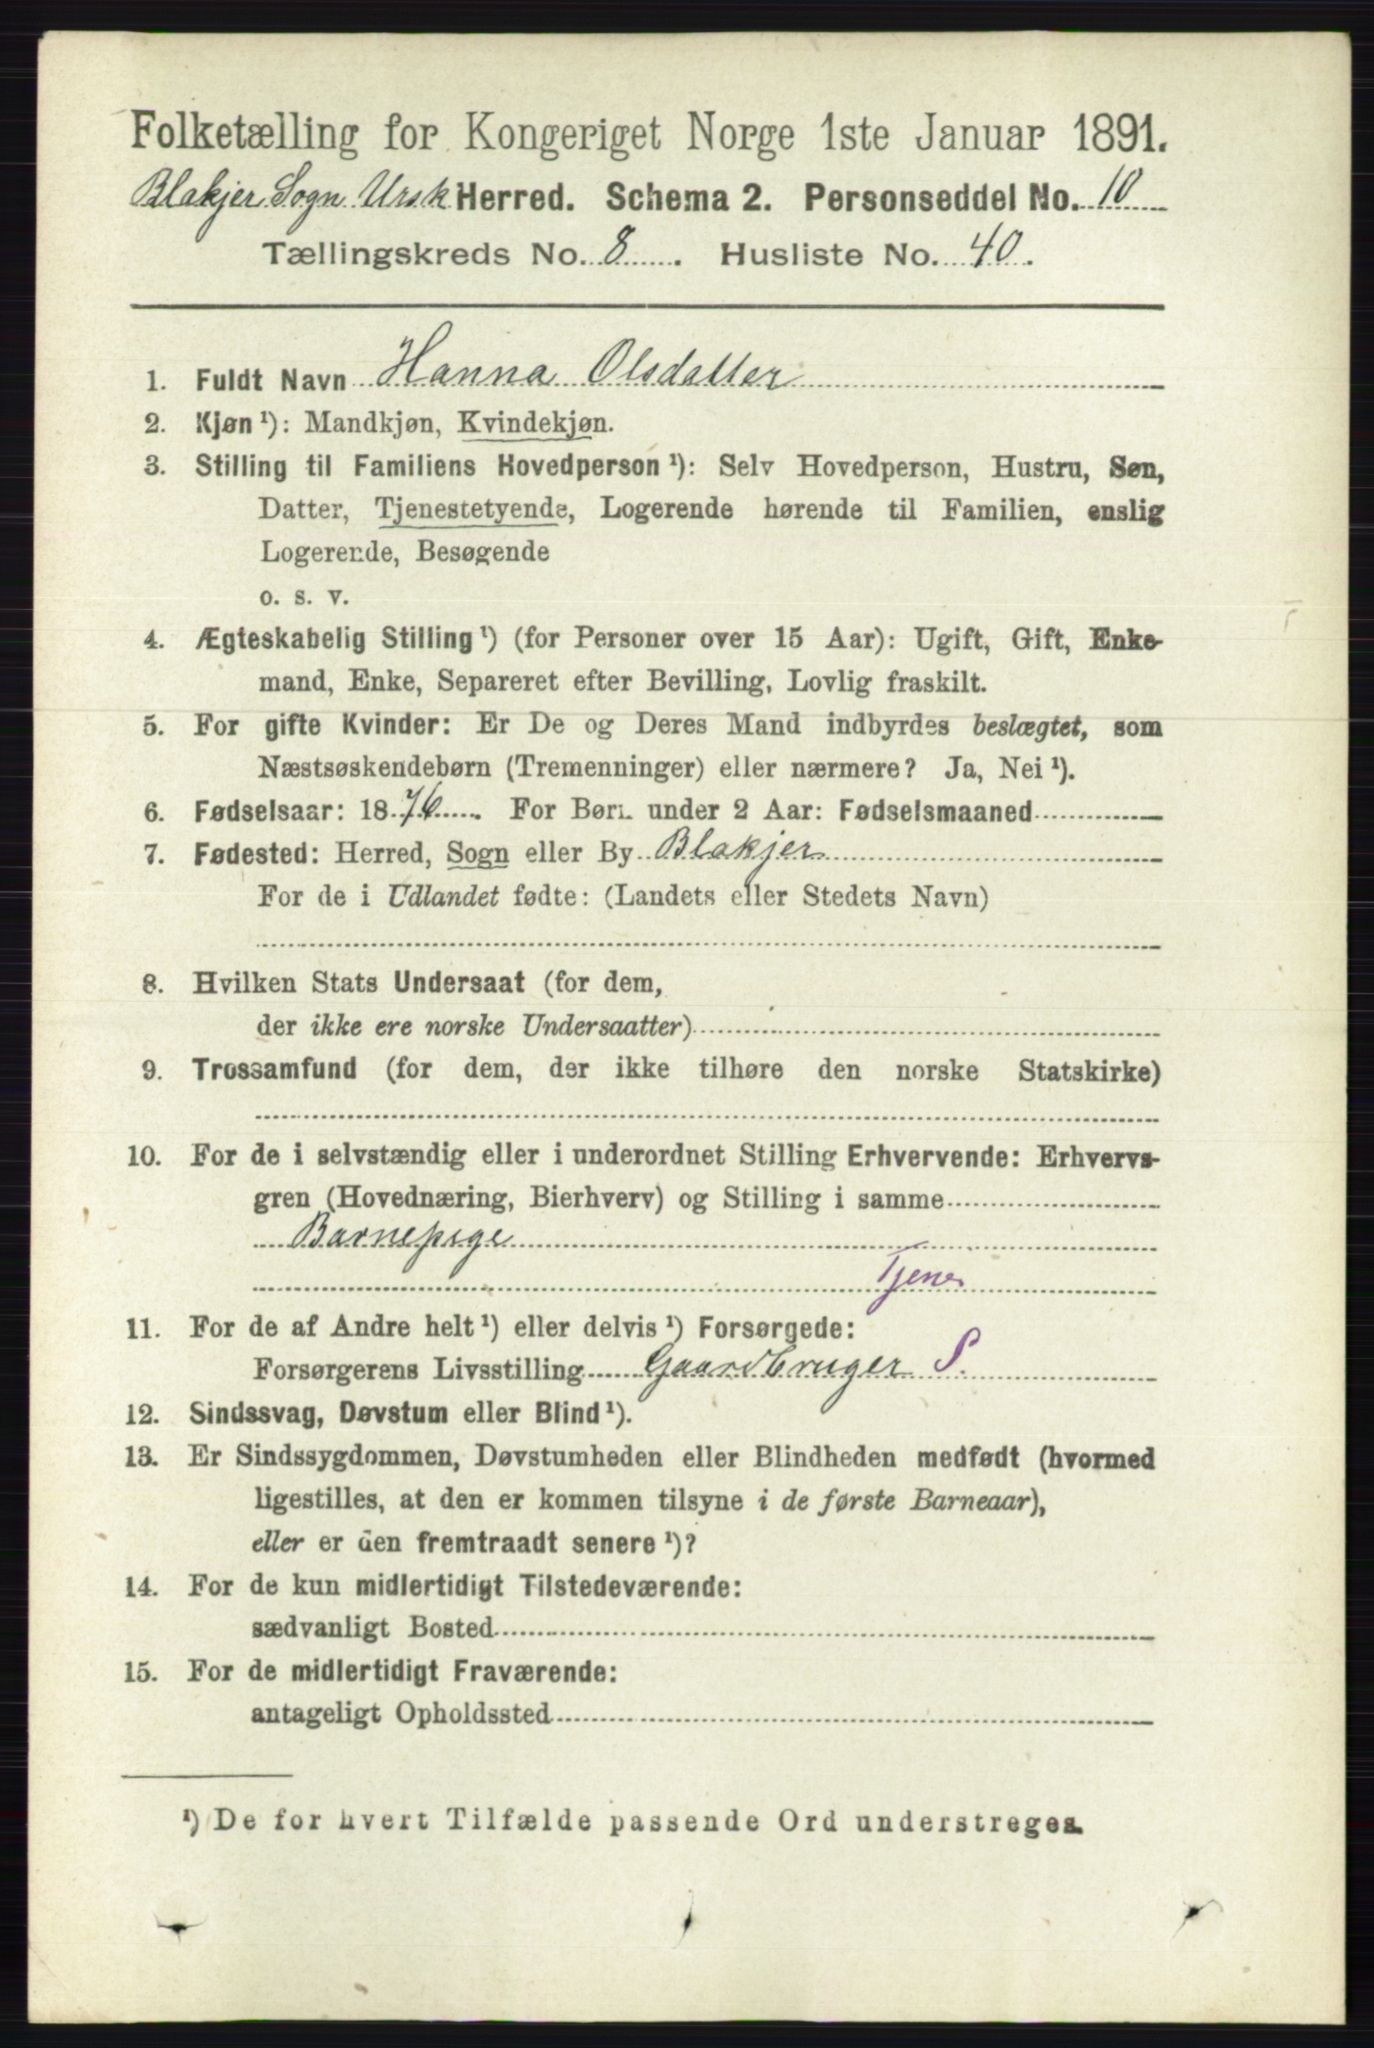 Folketælling for Kongeriget Norge 1ste Januar 1891.
Blakjer Sogn Ursk Herred. Schema 2. Personseddel No. 10
Tællingskreds No. 8. Husliste No. 40.
1. Fuldt Navn Hanna Olsdatter
2. Kjøn ¹): Mandkjøn, Kvindekjøn.
3. Stilling til Familiens Hovedperson ¹): Selv Hovedperson, Hustru, Søn,
Datter, Tjenestetyende, Logerende hørende til Familien, enslig
Logerende, Besøgende
o. s. v.
4. Ægteskabelig Stilling ¹) (for Personer over 15 Aar): Ugift, Gift, Enke-
mand, Enke, Separeret efter Bevilling, Lovlig fraskilt.
5. For gifte Kvinder: Er De og Deres Mand indbyrdes beslægtet, som
Næstsøskendebørn (Tremenninger) eller nærmere? Ja, Nei ¹).
6. Fødselsaar: 1876. For Børn under 2 Aar: Fødselsmaaned
7. Fødested: Herred, Sogn eller By Blakjer
For de i Udlandet fødte: (Landets eller Stedets Navn)
8. Hvilken Stats Undersaat (for dem,
der ikke ere norske Undersaatter)
9. Trossamfund (for dem, der ikke tilhøre den norske Statskirke)
10. For de i selvstændig eller i underordnet Stilling Erhvervende: Erhvervs-
gren (Hovednæring, Bierhverv) og Stilling i samme
Barnepige
Tjener
11. For de af Andre helt ¹) eller delvis ¹) Forsørgede:
Forsørgerens Livsstilling Gaardbruger S.
12. Sindssvag, Døvstum eller Blind ¹).
13. Er Sindssygdommen, Døvstumheden eller Blindheden medfødt (hvormed
ligestilles, at den er kommen tilsyne i de første Barneaar),
eller er den fremtraadt senere ¹)?
14. For de kun midlertidigt Tilstedeværende:
sædvanligt Bosted
15. For de midlertidigt Fraværende:
antageligt Opholdssted
¹) De for hvert Tilfælde passende Ord understreges.